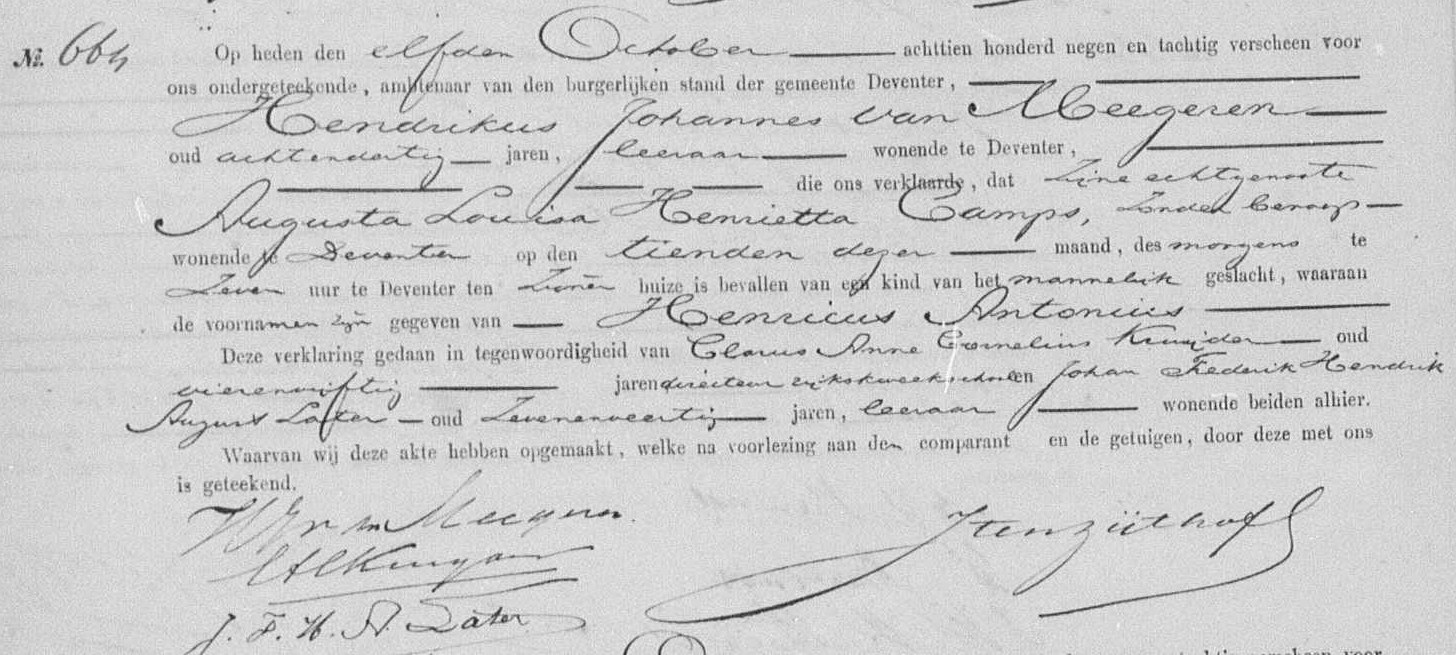 No. 664
Op heden den elfden October achttien honderd negen en tachtig verscheen voor
ons ondergeteekende, ambtenaar van den burgerlijken stand der gemeente Deventer,
Hendrikus Johannes van Meegeren
oud achtendertig jaren, leeraar wonende te Deventer,
die ons verklaarde, dat Zijne echtgenoote
Augusta Louisa Henrietta Camps, zonder beroep
wonende te Deventer op den tienden dezer maand, des morgens te
Zeven uur te Deventer ten Zijnen huize is bevallen van een kind van het mannelijk geslacht, waaraan
de voornamen zijn gegeven van Henricus Antonius
Deze verklaring gedaan in tegenwoordigheid van Claus Anne Cornelius Kruijder oud
vierenvijftig jaren directeur rijkskweekschool en Johan Frederik Hendrik
August Later oud Zevenenveertig jaren, leeraar wonende beiden alhier.
Waarvan wij deze akte hebben opgemaakt, welke na voorlezing aan den comparant en de getuigen, door deze met ons
is geteekend.
van Meegeren.
J. F. H. A. Later